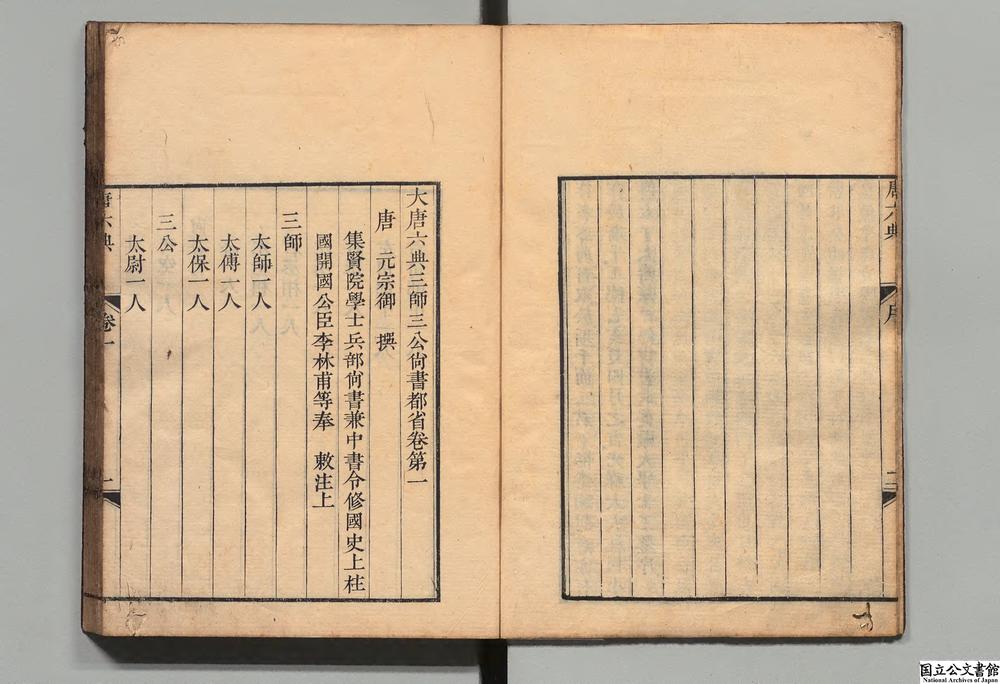 唐六典
序
二
大唐六典三師三公尚書都省卷第一
唐 元宗御 撰
集賢院學士兵部尚書兼中書令修國史上柱
國開國公臣李林甫等奉 敕注上
三師
太師一人
太傅一人
太保一人
三公
太尉一人
唐六典
卷一
一
国立公文書館
National Archives of Japan